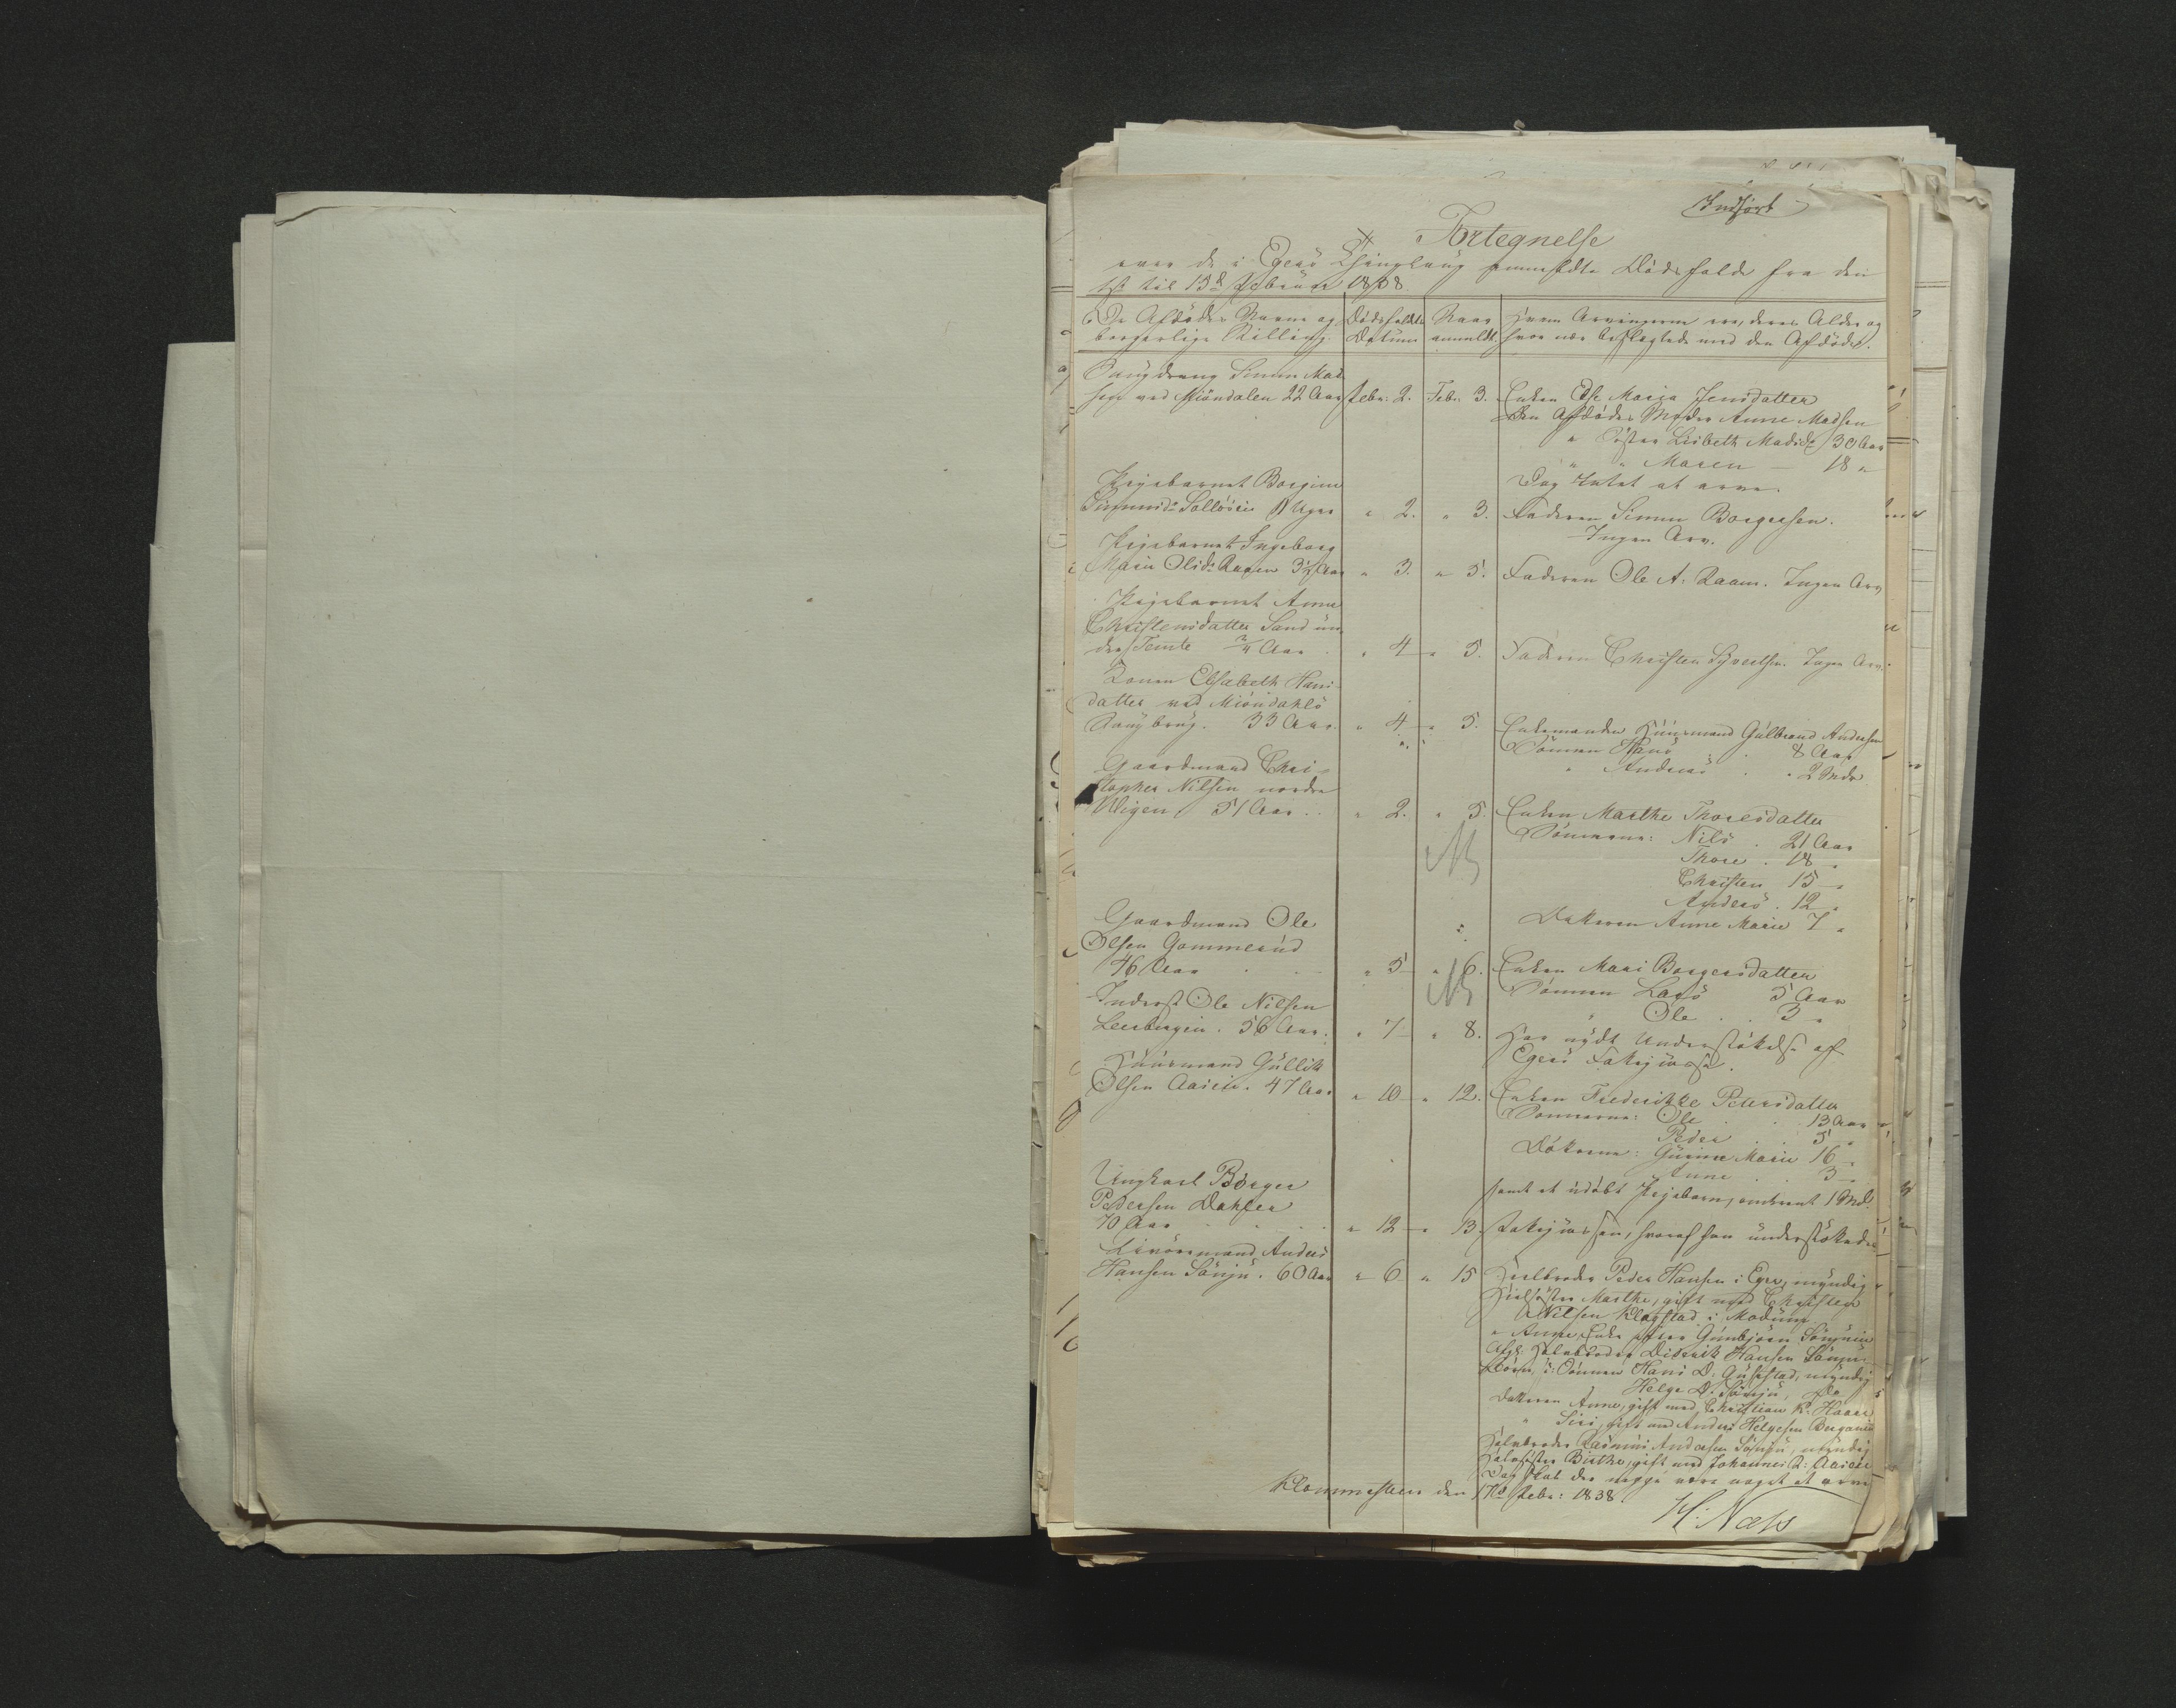 Indført
Fortegnelse
over de i Egers Thinglaug anmeldte Dødsfald fra den
1ste til 15de Februar 1838
De Afdødes Navne og borgerlige Stilling. Dødsfaldets Datum Naar anmeldt. Hvem Arvingerne ere, deres Alder og
hvor nær beslægtede med den Afdøde.
Saugdreng Simen Mad-
sen ved Miöndalen 22 Aar Febr: 2. Febr: 3. Enken Else Maria Jensdatter
Den Afdødes Moder Anne Madsen
" Söster Lisbeth Madsd: 30 Aar
" " Maren — 18 "
Dog Intet at arve.
Pigebarnet Borgine
Simensd: Solløsen Uger " 2. " 3. Faderen Simen Borgersen.
Ingen Arv.
Pigebarnet Ingeborg
Marie Olsd: Raaen 3½ Aar " 3. " 5. Faderen Ole A: Raaen. Ingen Arv
Pigebarnet Anne
Christensdatter Sand un-
der Temte ¾ Aar " 4 " 5. Faderen Christen Syvertsen. Ingen Arv.
Konen Elisabeth Hans-
datter ved Miöndahls
Saugbrug. 33 Aar. " 4 " 5. Enkemanden Huusmand Gulbrand Andersen
Sönnen Hans 8 Aar
" Anders " 2 Mdr
Gaardmand Chri-
stopher Nilsen nordre
Wigen 51 Aar " 2. " 5. Enken Marthe Thoresdatter
Sönnerne: Nils 21 Aar
Thore 18 "
Christen 15 "
Anders 12 "
Datteren Anne Marie 7 "
Gaardmand Ole
Olsen Gommerud
46 Aar " 5 " 6. Enken Mari Borgersdatter
Sönnen Lars 5 Aar
" Ole 3 "
Inderst Ole Nilsen
Leerbergen. 56 Aar. " 7 " 8. Har nydt Understøttelse af
Egers Fattigkasse.
Huusmand Gullik
Olsen Aasen. 47 Aar " 10 " 12. Enken Frederikke Petersdatter
Sönnerne: Ole 13 Aar
Peder 5 "
Døttrene: Gurine Marie 16 "
Anne 3 "
samt et udöbt Pigebarn, omtrent 1 Md.
Ungkarl Borger
Pedersen Dahler
70 Aar " 12 " 13. Fattigkassen, hvoraf han understöttedes
Anders
Hansen Sönju. 60 Aar " 6 " 15 Helbroder Peder Hansen i Eger, myndig
Helsöster Marthe, gift med Christen
Nilsen Klogstad i Modum
" Anne, Enke efter Gunbjörn
Afg: Halvbroder Diderik Hansen Sönju
Börn: Sönnen Hans D: myndig
Helge D: Sönju, Do
Datteren Anne, gift med Christian
" Siri, gift med Anders Helgesen
Halvbroder Andersen Sönju, myndig
Halvsöster Birthe, gift med Johannes Aasen
Dog skal der neppe være noget at arve
Klommesteen den 17de Febr: 1838.
H: Næss